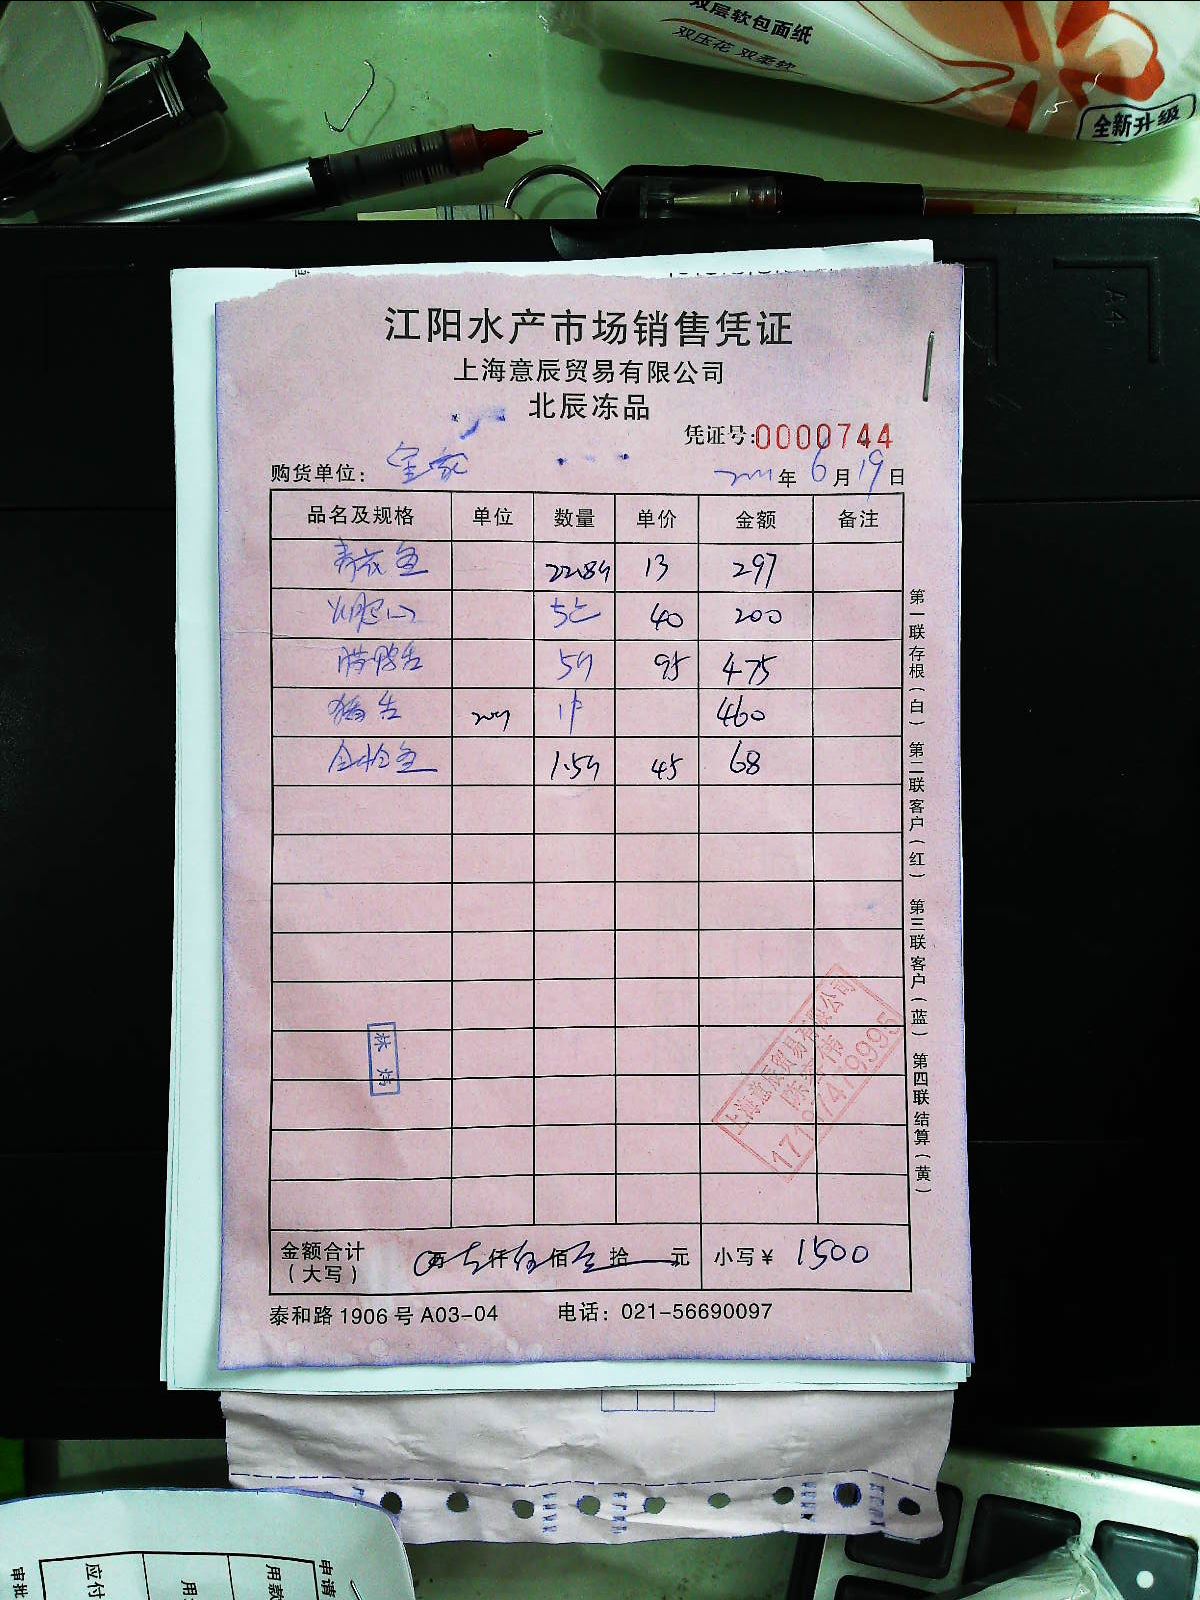 双层软包面纸
双压花 双柔软
全新升级
A4
江阳水产市场销售凭证
上海意辰贸易有限公司
北辰冻品
凭证号:0000744
购货单位: 年 6 月 19 日
品名及规格 单位 数量 单价 金额 备注
青衣鱼 22.8斤 13 297
5包 40 200
5斤 95 475
20斤 1件 460
金枪鱼 1.5斤 45 68
第一联存根(白) 第二联客户(红) 第三联客户(蓝) 第四联结算(黄)
林炜
上海意辰贸易有限公司
金额合计 万 仟 佰 拾 元 小写¥ 1500
(大写)
泰和路1906号A03-04 电话: 021-56690097
申请
用款
应付
审批